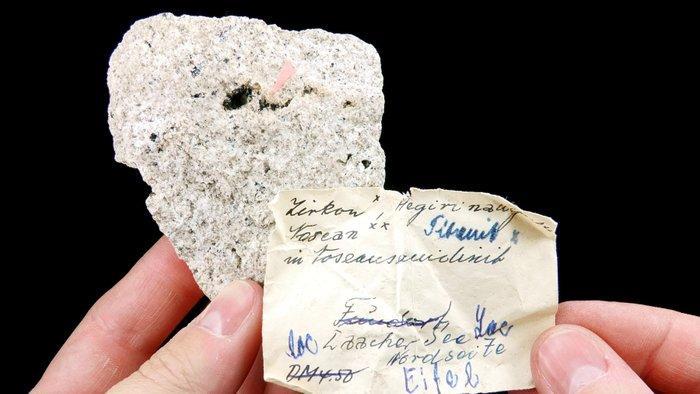 Zirkon x, Aegirinaug
Nosean xx Titanit x
in Noseansanidinit
Fundort
loc Laacher See
Nordseite
DM 4.50 Eifel